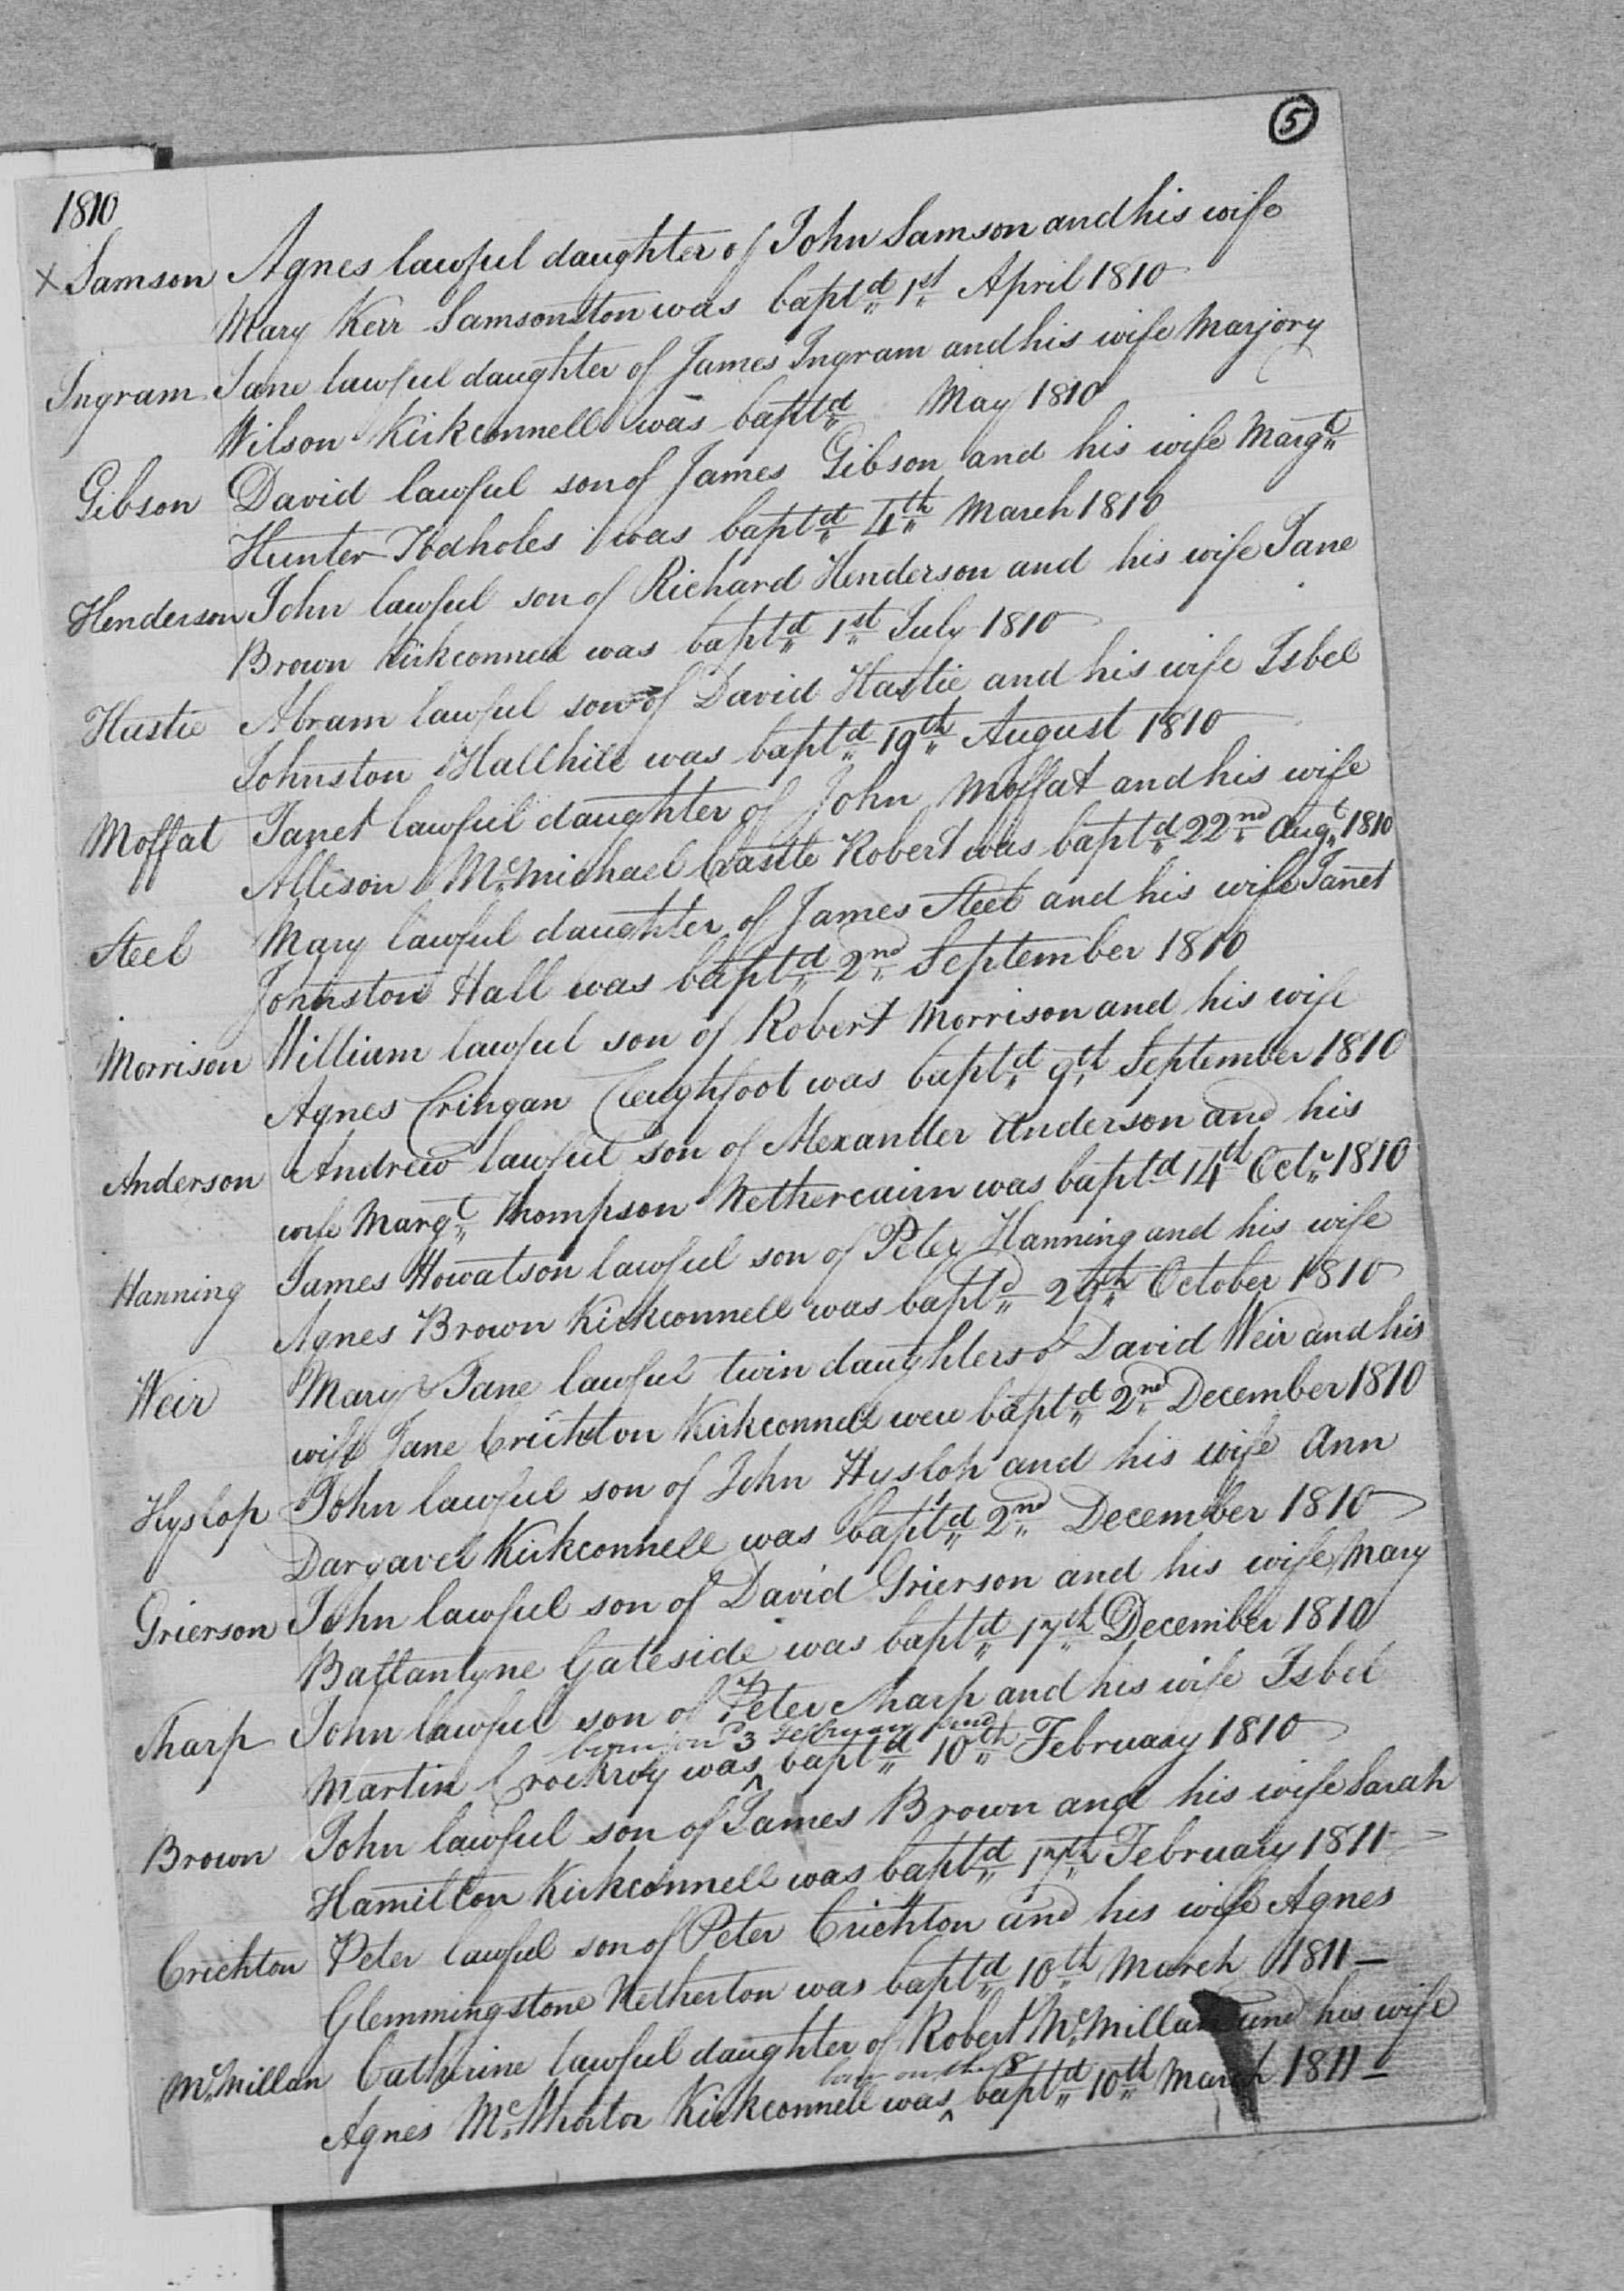 5
1810
× Samson Agnes lawful daughter of John Samson and his wife
Mary Kerr Samsonston was baptd 1st April 1810
Ingram Jane lawful daughter of James Ingram and his wife Marjory
Wilson Kirkconnell was baptd May 1810
Gibson David lawful son of James Gibson and his wife Margt
Hunter Todholes was baptd 4th March 1810
Henderson John lawful son of Richard Henderson and his wife Jane
Brown Kirkconnell was baptd 1st July 1810
Hastie Abram lawful son of David Hastie and his wife Isbel
Johnston Hallhill was baptd 19th August 1810
Moffat Janet lawful daughter of John Moffat and his wife
Allison McMichael Castle Robert was baptd 22nd Augt 1810
Steel Mary lawful daughter of James Steel and his wife Janet
Johnston Hall was baptd 2nd September 1810
Morrison William lawful son of Robert Morrison and his wife
Agnes Cringan Cleughfoot was baptd 9th September 1810
Anderson Andrew lawful son of Alexander Anderson and his
wife Margt Thompson Nethercairn was baptd 14th Octr 1810
Hanning James Howatson lawful son of Peter Hanning and his wife
Agnes Brown Kirkconnell was baptd 29th October 1810
Weir Mary & Jane lawful twin daughters of David Weir and his
wife Jane Crichton Kirkconnell were baptd 2nd December 1810
Hyslop John lawful son of John Hyslop and his wife Ann
Dargavel Kirkconnell was baptd 2nd December 1810
Grierson John lawful son of David Grierson and his wife Mary
Ballantyne Gateside was baptd 17th December 1810
Sharp John lawful son of Peter Sharp and his wife Isbel
born on 3 February and
Martin Crockroy was ^ baptd 10th February 1810
Brown John lawful son of James Brown and his wife Sarah
Hamilton Kirkconnell was baptd 17th February 1811
Crichton Peter lawful son of Peter Crichton and his wife Agnes
Glemmingstone Netherton was baptd 10th March 1811
McMillan Catherine lawful daughter of Robert McMillan and his wife
born on the 8
Agnes Kirkconnell was ^ baptd 10th March 1811